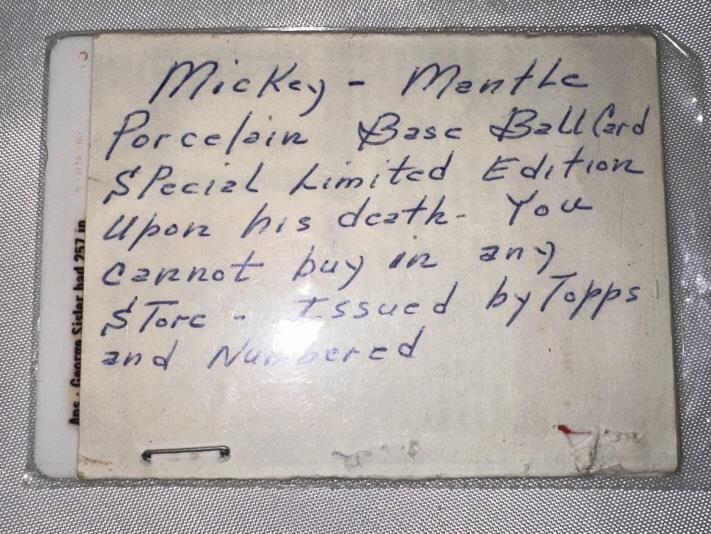 Mickey - Mantle
Porcelain Base Ball Card
Special Limited Edition
Upon his death - You
cannot buy in any
Store - Issued by Topps
and Numbered
Ans: George Sisler had 257 in